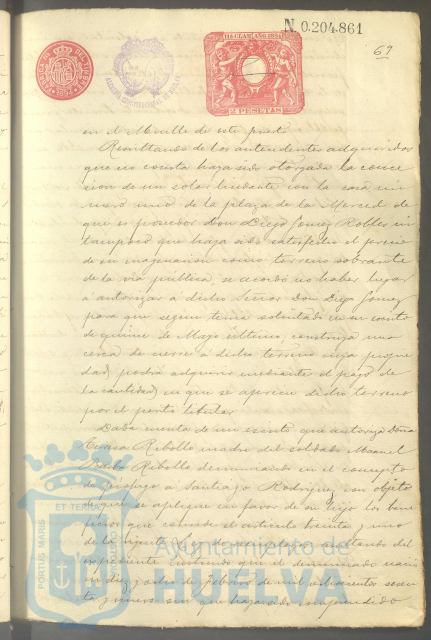 N. 0.204.861
69
11ª CLASE AÑO 1894
2 PESETAS
en el Muelle de este puerto
Resultando de los antecedentes adquiridos
que no consta haya sido otorgada la conce
sion de un solar lindante con la casa nú
mero uno de la plaza de la Merced de
que es poseedor Don Diego Gomez Robles ni
tampoco que haya sido satisfecho el precio
de su enagenacion como terreno sobrante
de la via pública, se acordó no haber lugar
á autorizar á dicho Señor Don Diego Gomez
para que segun tenia solicitado en su escrito
de quince de Mayo último, construya una
cerca de cierre á dicho terreno cuya propie
dad podrá adquirir mediante el pago de
la cantidad en que se aprecie dicho terreno
por el perito titular
Dada cuenta de un escrito que autoriza Doña
Rebollo madre del soldado Manuel
Rebollo denunciando en el concepto
de prófugo á Santiago Rodriguez, con objeto
de que se aplique en favor de su hijo los bene
ficios que concede el articulo treinta y uno
de la vigente Ley de reemplazos resultando del
expediente que el denunciado nació
en diez y ocho de Febrero de mil ochocientos sesen
ta y nueve sin que haya sido comprendido
PORTUS MARIS
ET TERRAE
Ayuntamiento de
HUELVA